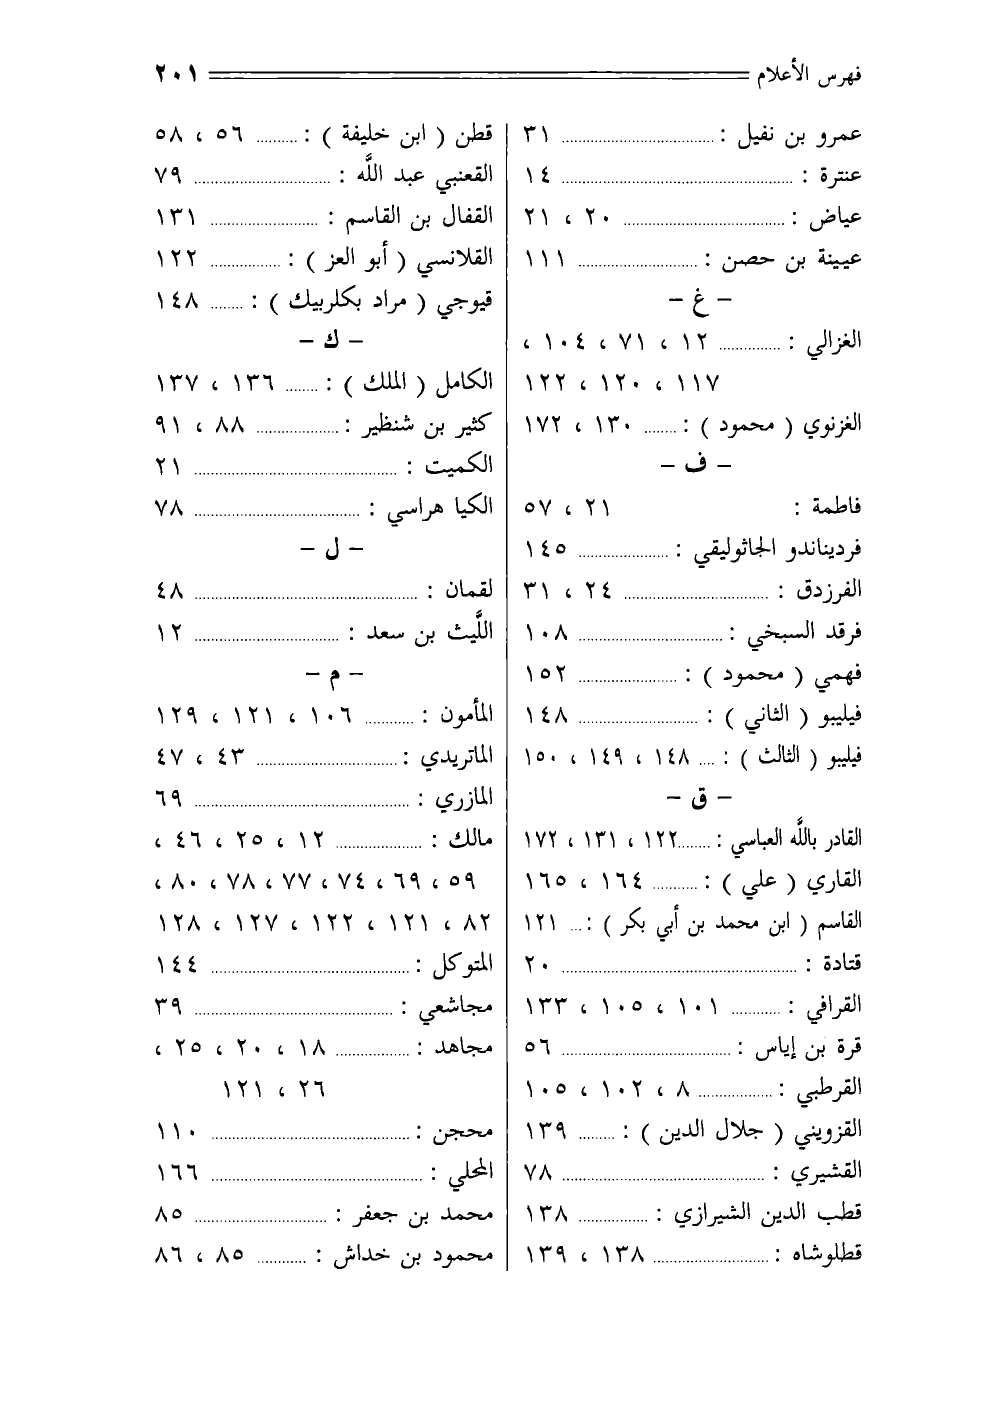 فهرس الأعلام ٢٠١
عمرو بن نفيل : ............ ٣١
عنترة : ............ ١٤
عياض : ............ ٢٠ ، ٢١
عيينة بن حصن : ............ ١١١
– غ –
الغزالي : ............ ١٢ ، ٧١ ، ١٠٤ ،
١١٧ ، ١٢٠ ، ١٢٢
الغزنوي ( محمود ) : ........ ١٣٠ ، ١٧٢
– ف –
فاطمة : ٢١ ، ٥٧
فرديناندو الجاثوليقي : ............ ١٤٥
الفرزدق : ............ ٢٤ ، ٣١
فرقد السبخي : ............ ١٠٨
فهمي ( محمود ) : ............ ١٥٢
فيليبو ( الثاني ) : ............ ١٤٨
فيليبو ( الثالث ) : .... ١٤٨ ، ١٤٩ ، ١٥٠
– ق –
القادر باللَّه العباسي : ........ ١٢٢ ، ١٣١ ، ١٧٢
القاري ( علي ) : ............ ١٦٤ ، ١٦٥
القاسم ( ابن محمد بن أبي بكر ) : ... ١٢١
قتادة : ............ ٢٠
القرافي : ............ ١٠١ ، ١٠٥ ، ١٣٣
قرة بن إياس : ............ ٥٦
القرطبي : ............ ٨ ، ١٠٢ ، ١٠٥
القزويني ( جلال الدين ) : ......... ١٣٩
القشيري : ............ ٧٨
قطب الدين الشيرازي : ............ ١٣٨
قطلوشاه : ............ ١٣٨ ، ١٣٩
قطن ( ابن خليفة ) : .......... ٥٦ ، ٥٨
القعنبي عبد اللَّه : ............ ٧٩
القفال بن القاسم : ............ ١٣١
القلانسي ( أبو العز ) : ............ ١٢٢
قيوجي ( مراد بكلربيك ) : ........ ١٤٨
– ك –
الكامل ( الملك ) : ........ ١٣٦ ، ١٣٧
كثير بن شنظير : ............ ٨٨ ، ٩١
الكميت : ............ ٢١
الكيا هراسي : ............ ٧٨
– ل –
لقمان : ............ ٤٨
اللَّيث بن سعد : ............ ١٢
– م –
المأمون : ............ ١٠٦ ، ١٢١ ، ١٢٩
الماتريدي : ............ ٤٣ ، ٤٧
المازري : ............ ٦٩
مالك : ............ ١٢ ، ٢٥ ، ٤٦ ،
٥٩ ، ٦٩ ، ٧٤ ، ٧٧ ، ٧٨ ، ٨٠ ،
٨٢ ، ١٢١ ، ١٢٢ ، ١٢٧ ، ١٢٨
المتوكل : ............ ١٤٤
مجاشعي : ............ ٣٩
مجاهد : ............ ١٨ ، ٢٠ ، ٢٥ ،
٢٦ ، ١٢١
محجن : ............ ١١٠
المحلي : ............ ١٦٦
محمد بن جعفر : ............ ٨٥
محمود بن خداش : ............ ٨٥ ، ٨٦